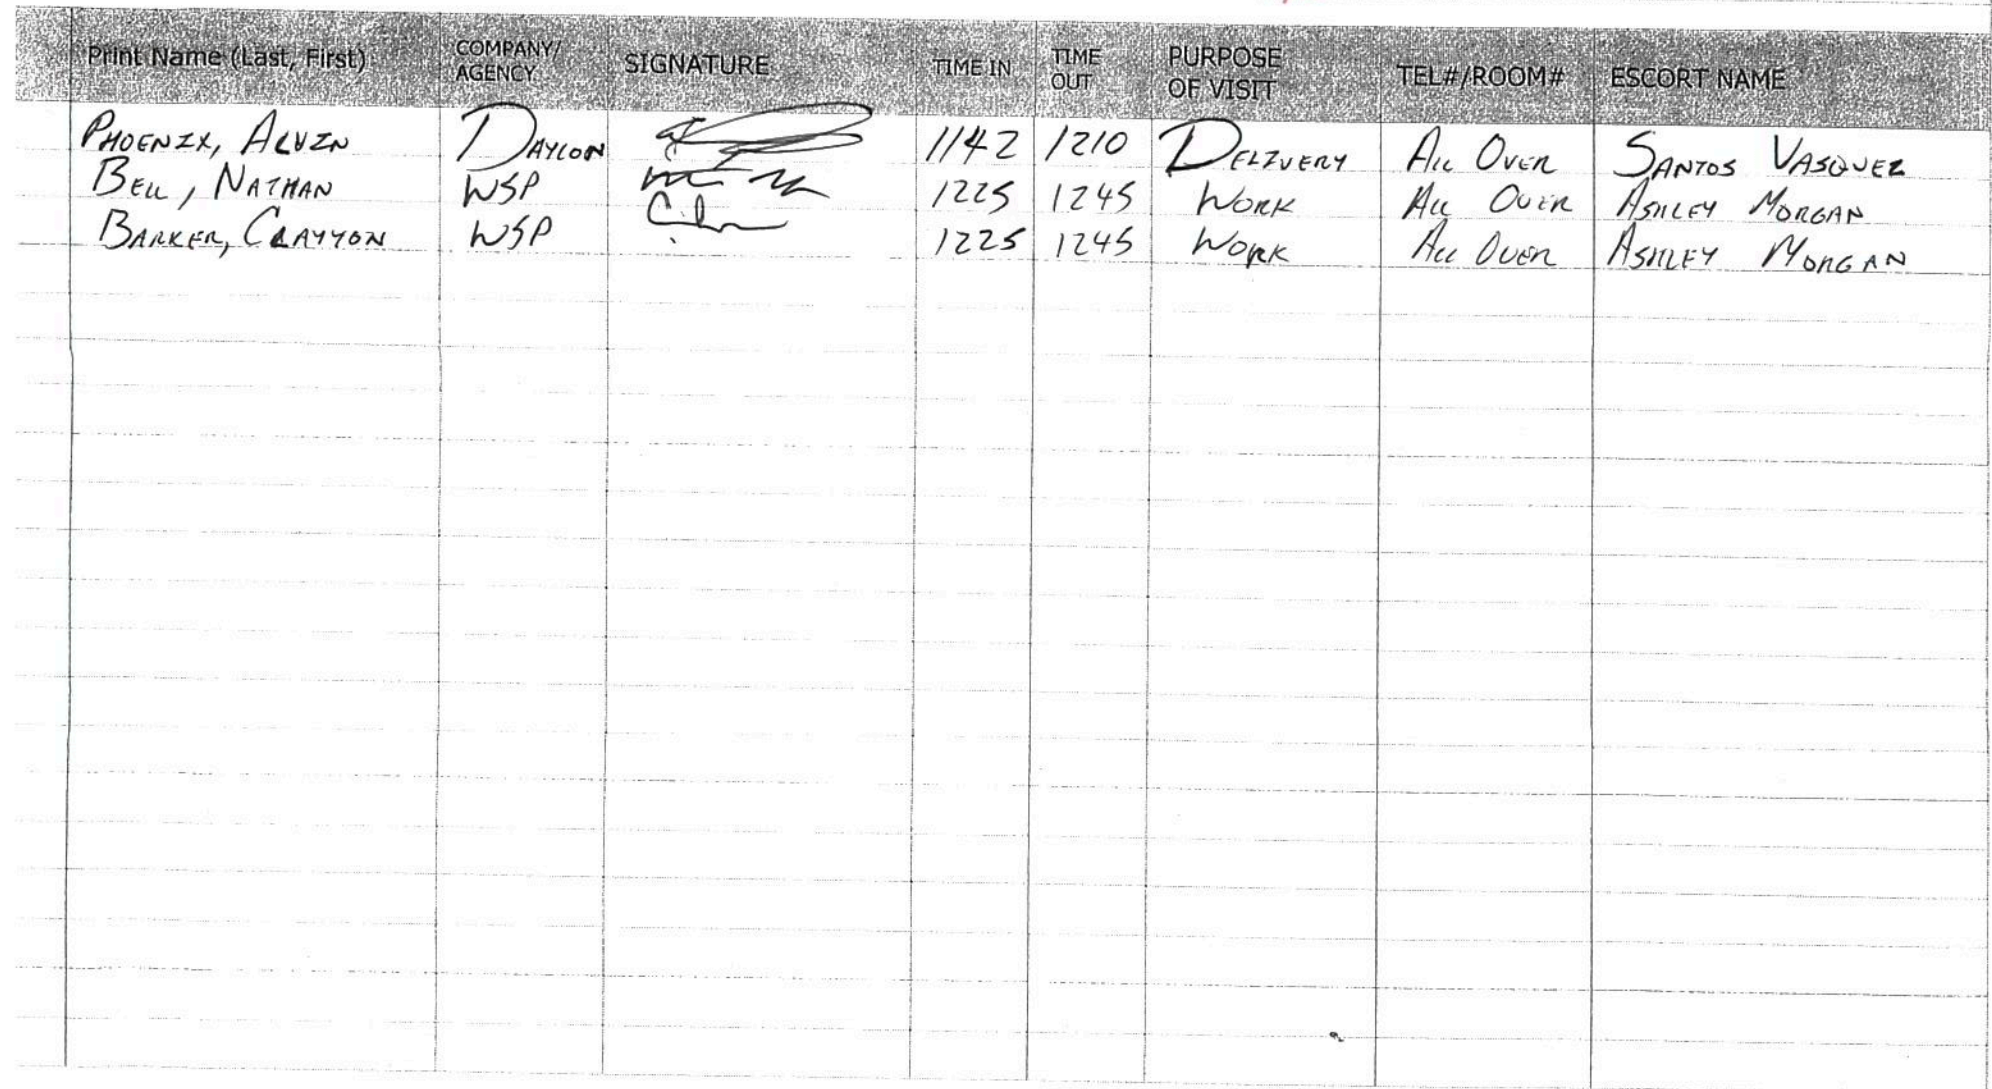 Print Name (Last, First) COMPANY/ AGENCY SIGNATURE TIME IN TIME OUT PURPOSE OF VISIT TEL#/ROOM# ESCORT NAME
PHOENIX, ALVIN DAYLON 1142 1210 DELIVERY ALL OVER SANTOS VASQUEZ
BELL, NATHAN WSP 1225 1245 WORK ALL OVER ASHLEY MORGAN
BARKER, CLAYTON WSP 1225 1245 WORK ALL OVER ASHLEY MORGAN